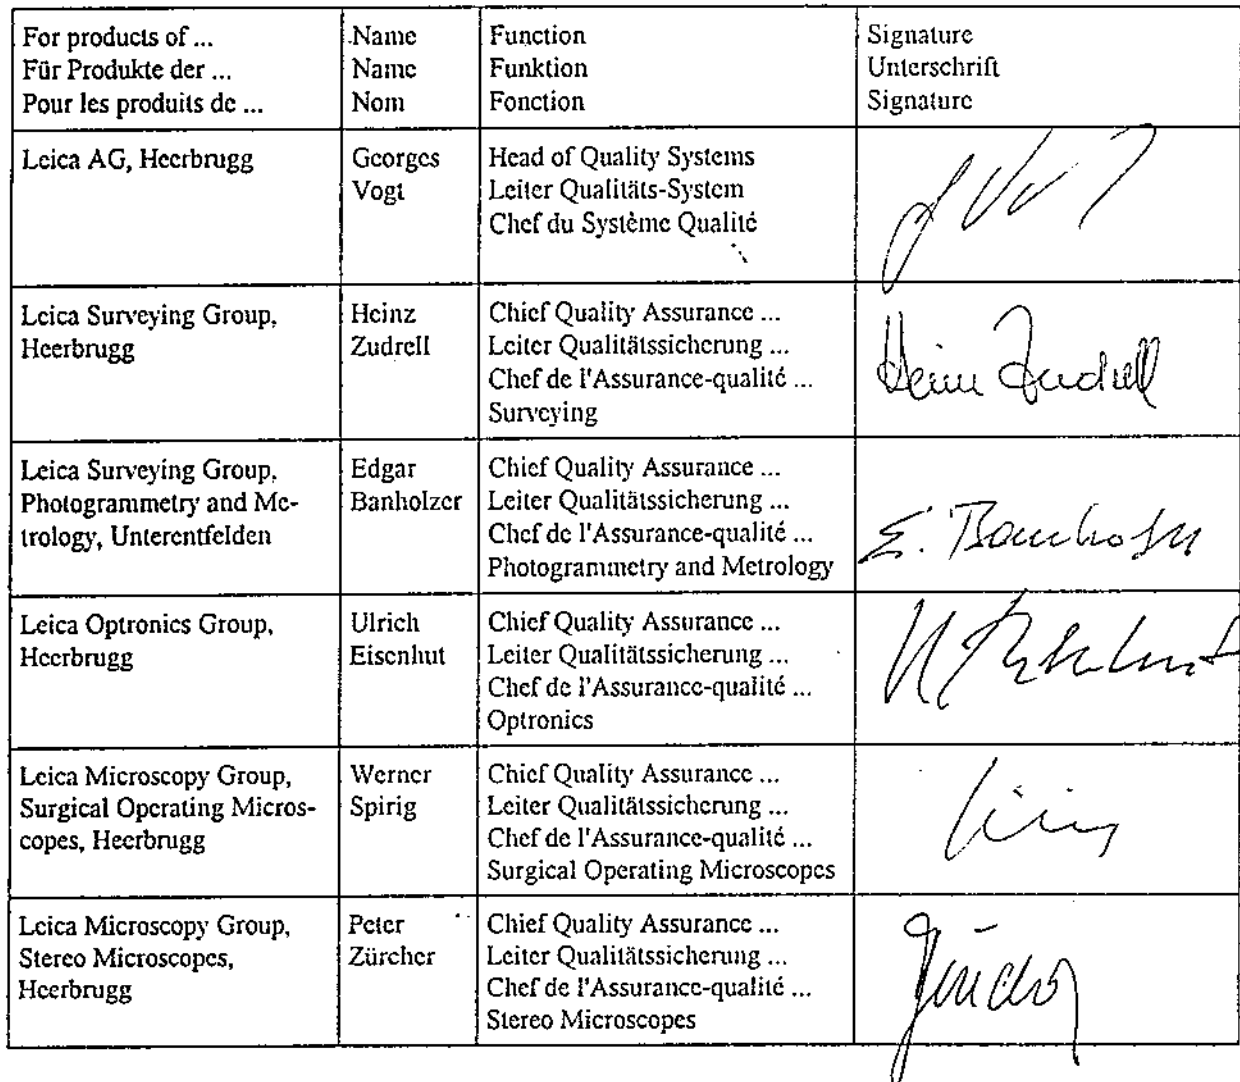 For products of ...
Für Produkte der ...
Pour les produits de ...
Name
Name
Nom
Function
Funktion
Fonction
Signature
Unterschrift
Signature
Leica AG, Heerbrugg
Georges
Vogt
Head of Quality Systems
Leiter Qualitäts-System
Chef du Système Qualité
Leica Surveying Group,
Heerbrugg
Heinz
Zudrell
Chief Quality Assurance ...
Leiter Qualitätssicherung ...
Chef de l'Assurance-qualité ...
Surveying
Heinz Zudrell
Leica Surveying Group,
Photogrammetry and Me-
trology, Unterentfelden
Edgar
Banholzer
Chief Quality Assurance ...
Leiter Qualitätssicherung ...
Chef de l'Assurance-qualité ...
Photogrammetry and Metrology
E. Banholzer
Leica Optronics Group,
Heerbrugg
Ulrich
Eisenhut
Chief Quality Assurance ...
Leiter Qualitätssicherung ...
Chef de l'Assurance-qualité ...
Optronics
Leica Microscopy Group,
Surgical Operating Micros-
copes, Heerbrugg
Werner
Spirig
Chief Quality Assurance ...
Leiter Qualitätssicherung ...
Chef de l'Assurance-qualité ...
Surgical Operating Microscopes
Leica Microscopy Group,
Stereo Microscopes,
Heerbrugg
Peter
Zürcher
Chief Quality Assurance ...
Leiter Qualitätssicherung ...
Chef de l'Assurance-qualité ...
Stereo Microscopes